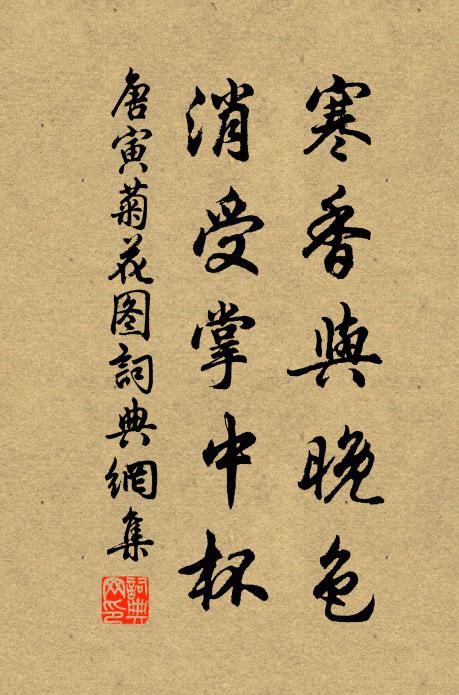 寒香與晚色
消受掌中杯
唐寅菊花图詞典網集
詞典网印